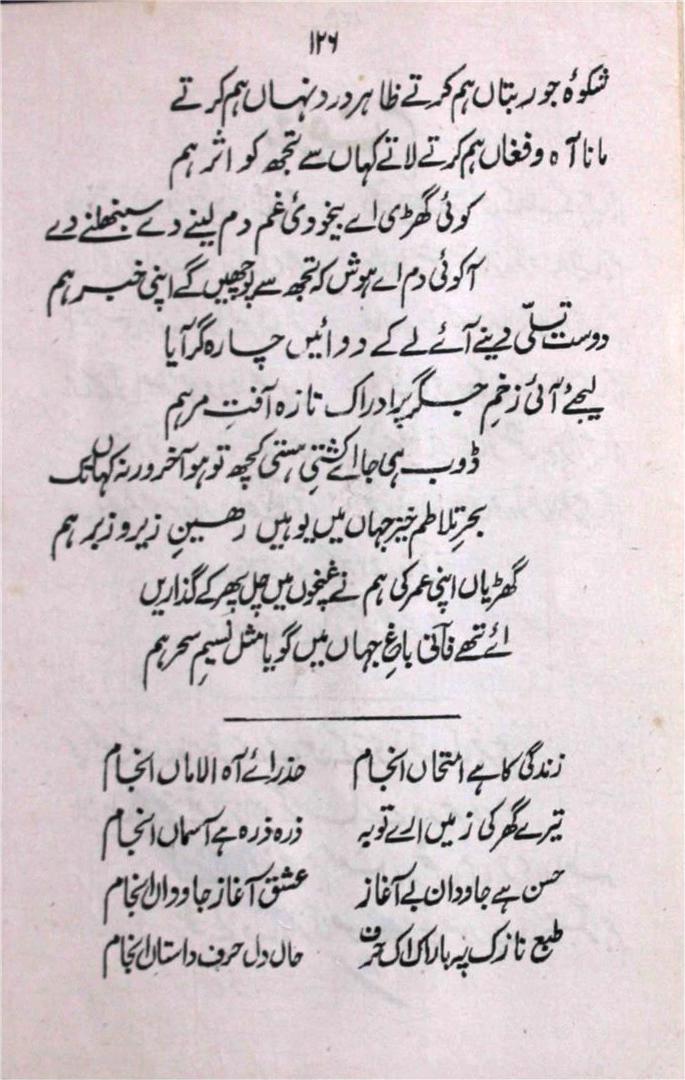 ۱۲۶
شکوۂ جور بتاں ہم کرتے ظاہر درد نہاں ہم کرتے
مانا آہ و فغاں ہم کرتے لاتے کہاں سے تجھ کو اثر ہم
کوئی گھڑی اے بیخودیٔ غم دم لینے دے سنبھلنے دے
آ کوئی دم اے ہوش کہ تجھ سے پوچھیں گے اپنی خبر ہم
دوست تسلّی دینے آئے لے کے دوائیں چارہ گر آیا
لیجئے آئی زخمِ جگر پر ادراک تازہ آفتِ مرہم
ڈوب ہی جا اے کشتیِ ہستی کچھ تو ہو آخر ورنہ کہاں تک
بحرِ تلاطم خیز جہاں میں یوہیں رہینِ زیر و زبر ہم
گھڑیاں اپنی عمر کی ہم نے غنچوں میں چل پھر کے گذاریں
آئے تھے فانی باغِ جہاں میں گویا مثل نسیمِ سحر ہم
زندگی کا ہے امتحاں انجام حذر اے آہ الاماں انجام
تیرے گھر کی زمیں ارے توبہ ذرہ ذرہ ہے آسماں انجام
حسن ہے جاودان بے آغاز عشق آغاز جاوداں انجام
طبع نازک پہ بار اک اک حرف حال دل حرف داستاں انجام